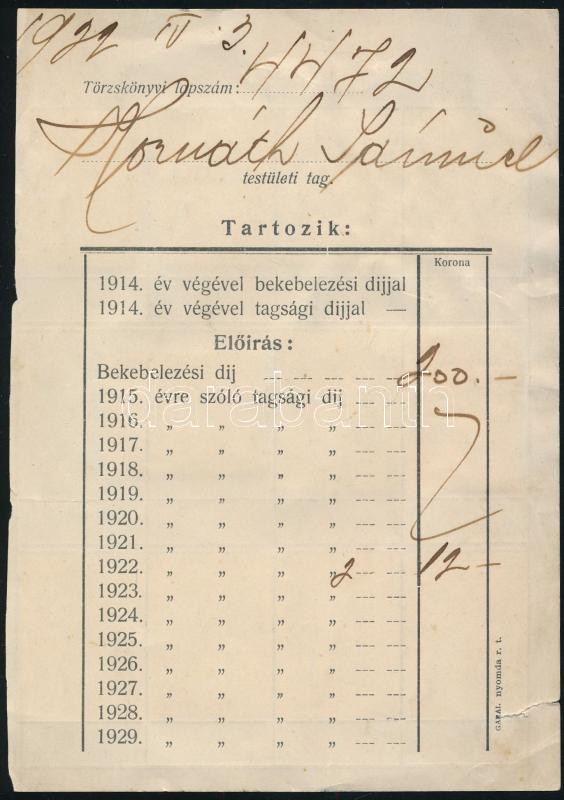 1922 IV 3.
Törzskönyvi lapszám: 4472
Horváth Sámuel
testületi tag.
Tartozik:
Korona
1914. év végével bekebelezési dijjal
1914. év végével tagsági dijjal —
Előírás:
Bekebelezési dij — — — — 200.—
1915. évre szóló tagsági dij — —
1916. „ „ „ „ — —
1917. „ „ „ „ — —
1918. „ „ „ „ — —
1919. „ „ „ „ — —
1920. „ „ „ „ — —
1921. „ „ „ „ — —
1922. „ „ „ „ 2 — — 12—
1923. „ „ „ „ — —
1924. „ „ „ „ — —
1925. „ „ „ „ — —
1926. „ „ „ „ — —
1927. „ „ „ „ — —
1928. „ „ „ „ — —
1929. „ „ „ „ — —
GARAI nyomda r. t.
darabanth